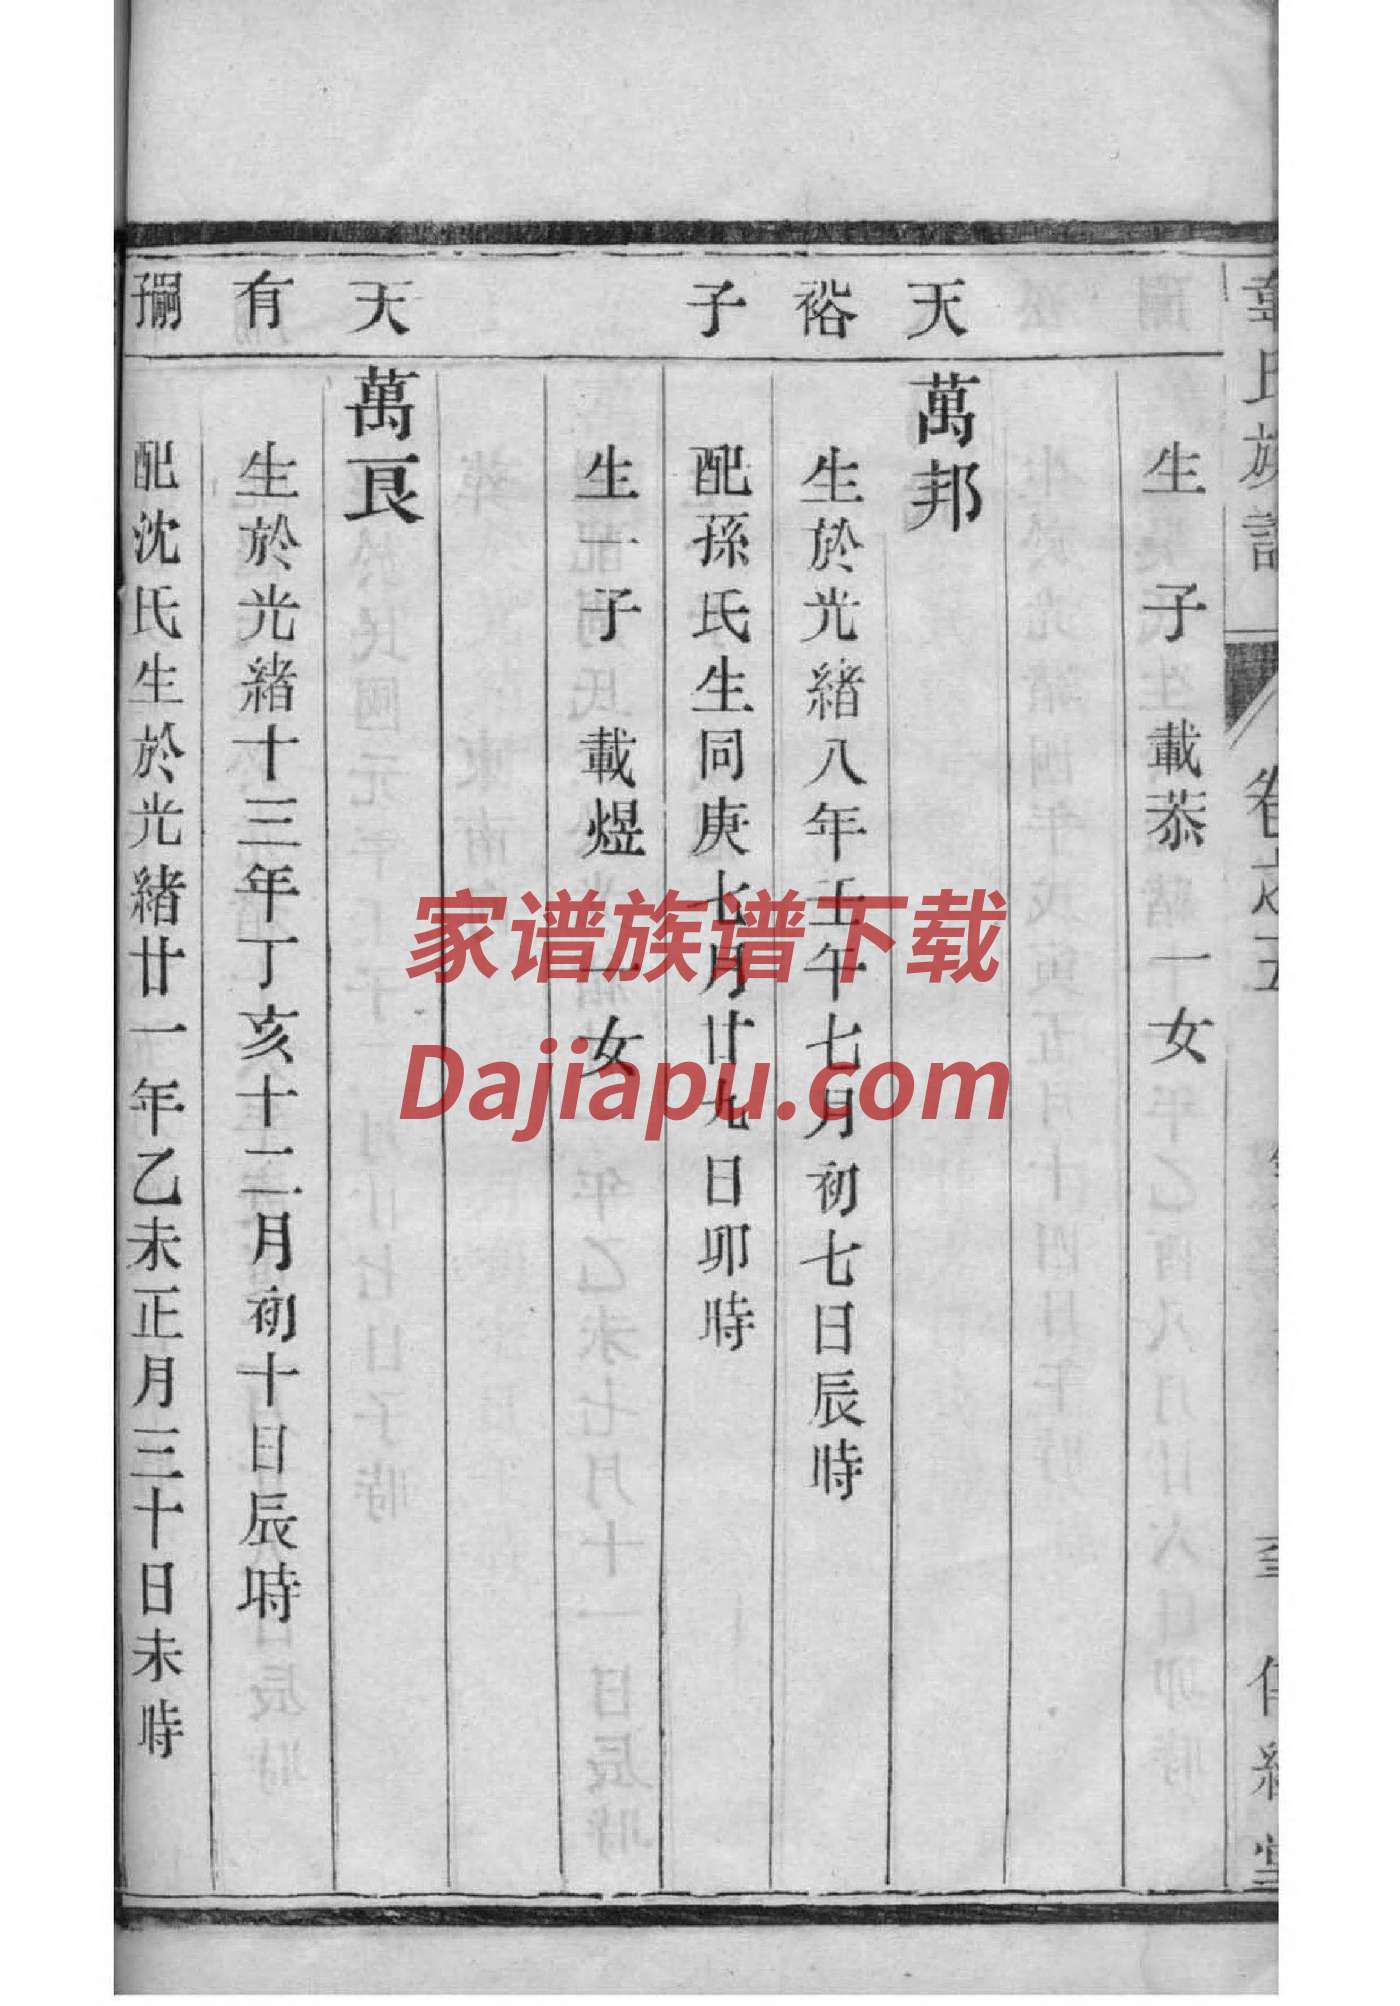 氏族譜 卷之五 堂
生 子 載恭 一女
天 萬邦
裕 生於光緒八年壬午七月初七日辰時
子 配孫氏生同庚七月廿九日卯時
生一子 載煜 一女
天 萬良
有 生於光緒十三年丁亥十二月初十日辰時
配沈氏生於光緒廿一年乙未正月三十日未時
家谱族谱下载
Dajiapu.com